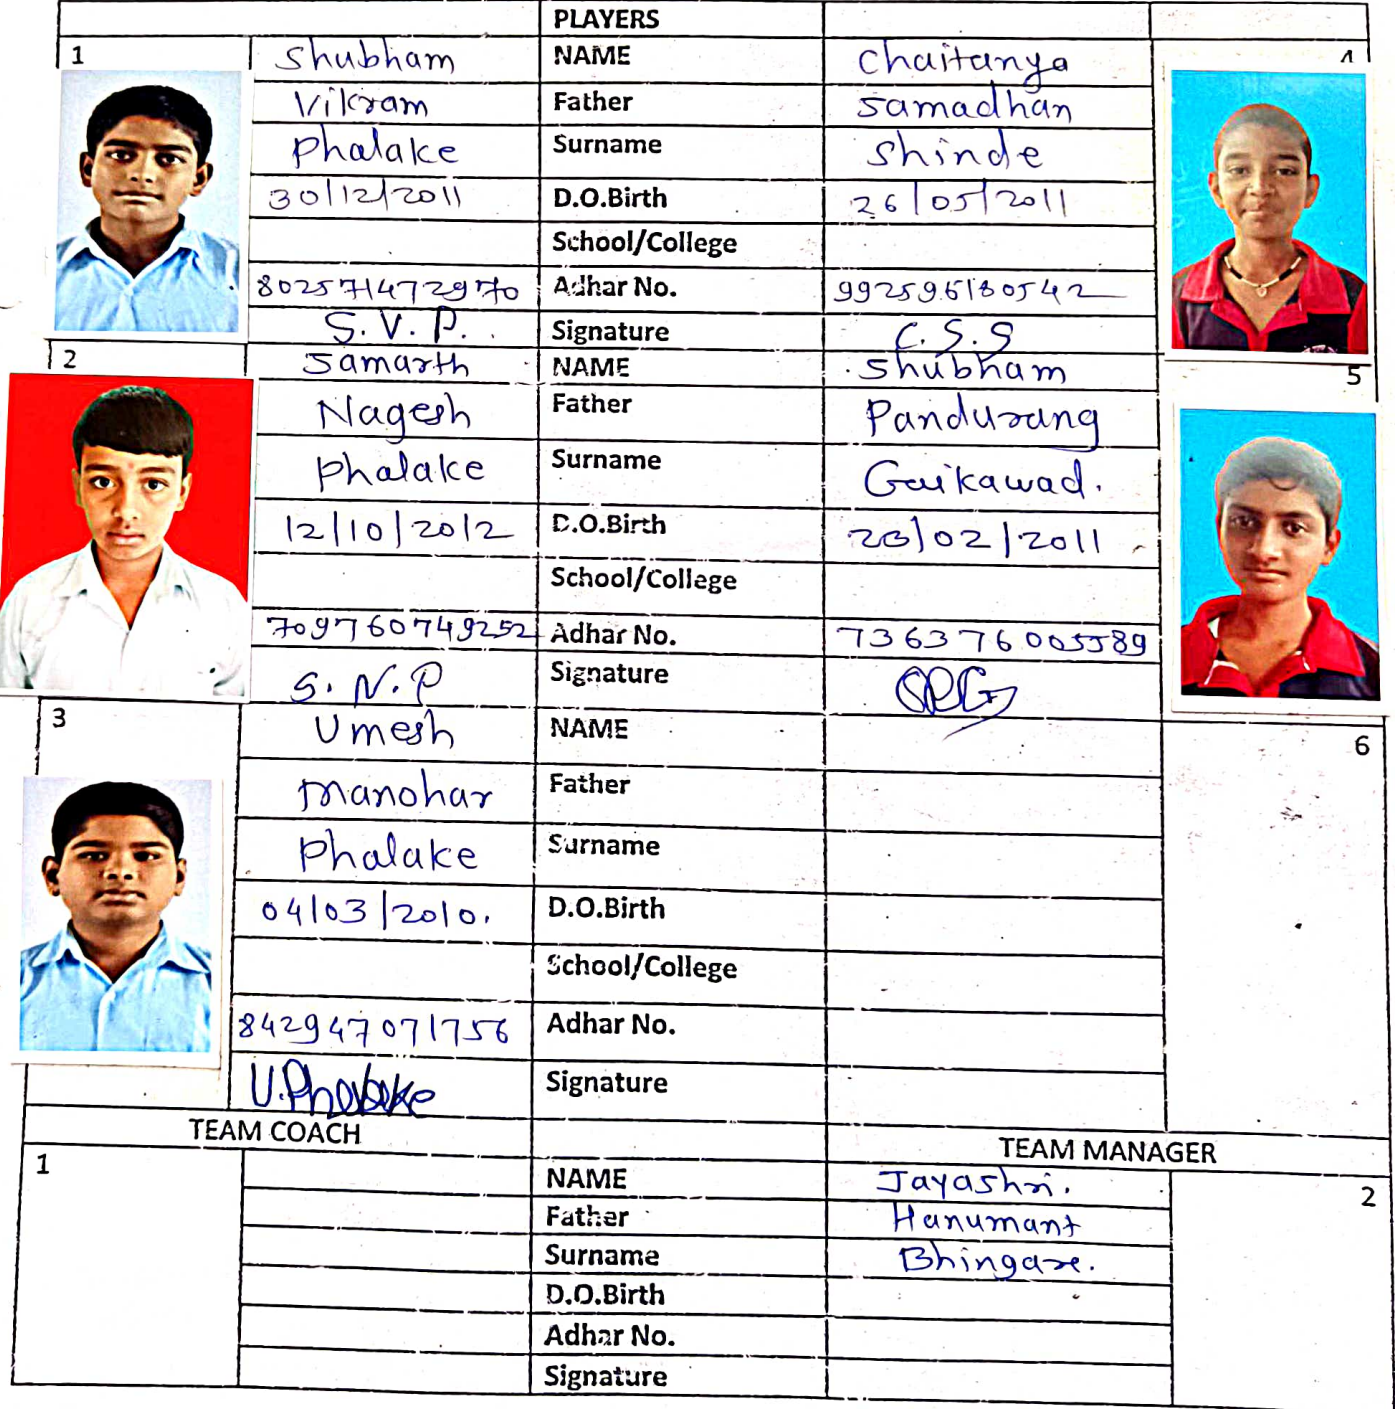 PLAYERS
1 Shubham NAME Chaitanya 4
Vikram Father Samadhan
Phalake Surname Shinde
30/12/2011 D.O.Birth 26/05/2011
School/College
802571472970 Adhar No. 992596180542
S.V.P. Signature C.S.S
2 Samarth NAME Shubham 5
Nagesh Father Pandurang
Phalake Surname Gaikawad.
12/10/2012 D.O.Birth
School/College
709760749252 Adhar No. 736376005589
S.N.P Signature SPG
3 Umesh NAME 6
Manohar Father
Phalake Surname
04/03/2010. D.O.Birth
School/College
842947071756 Adhar No.
U.Phalake Signature
TEAM COACH TEAM MANAGER
1 NAME Jayashri. 2
Father Hanumant
Surname Bhingare.
D.O.Birth
Adhar No.
Signature